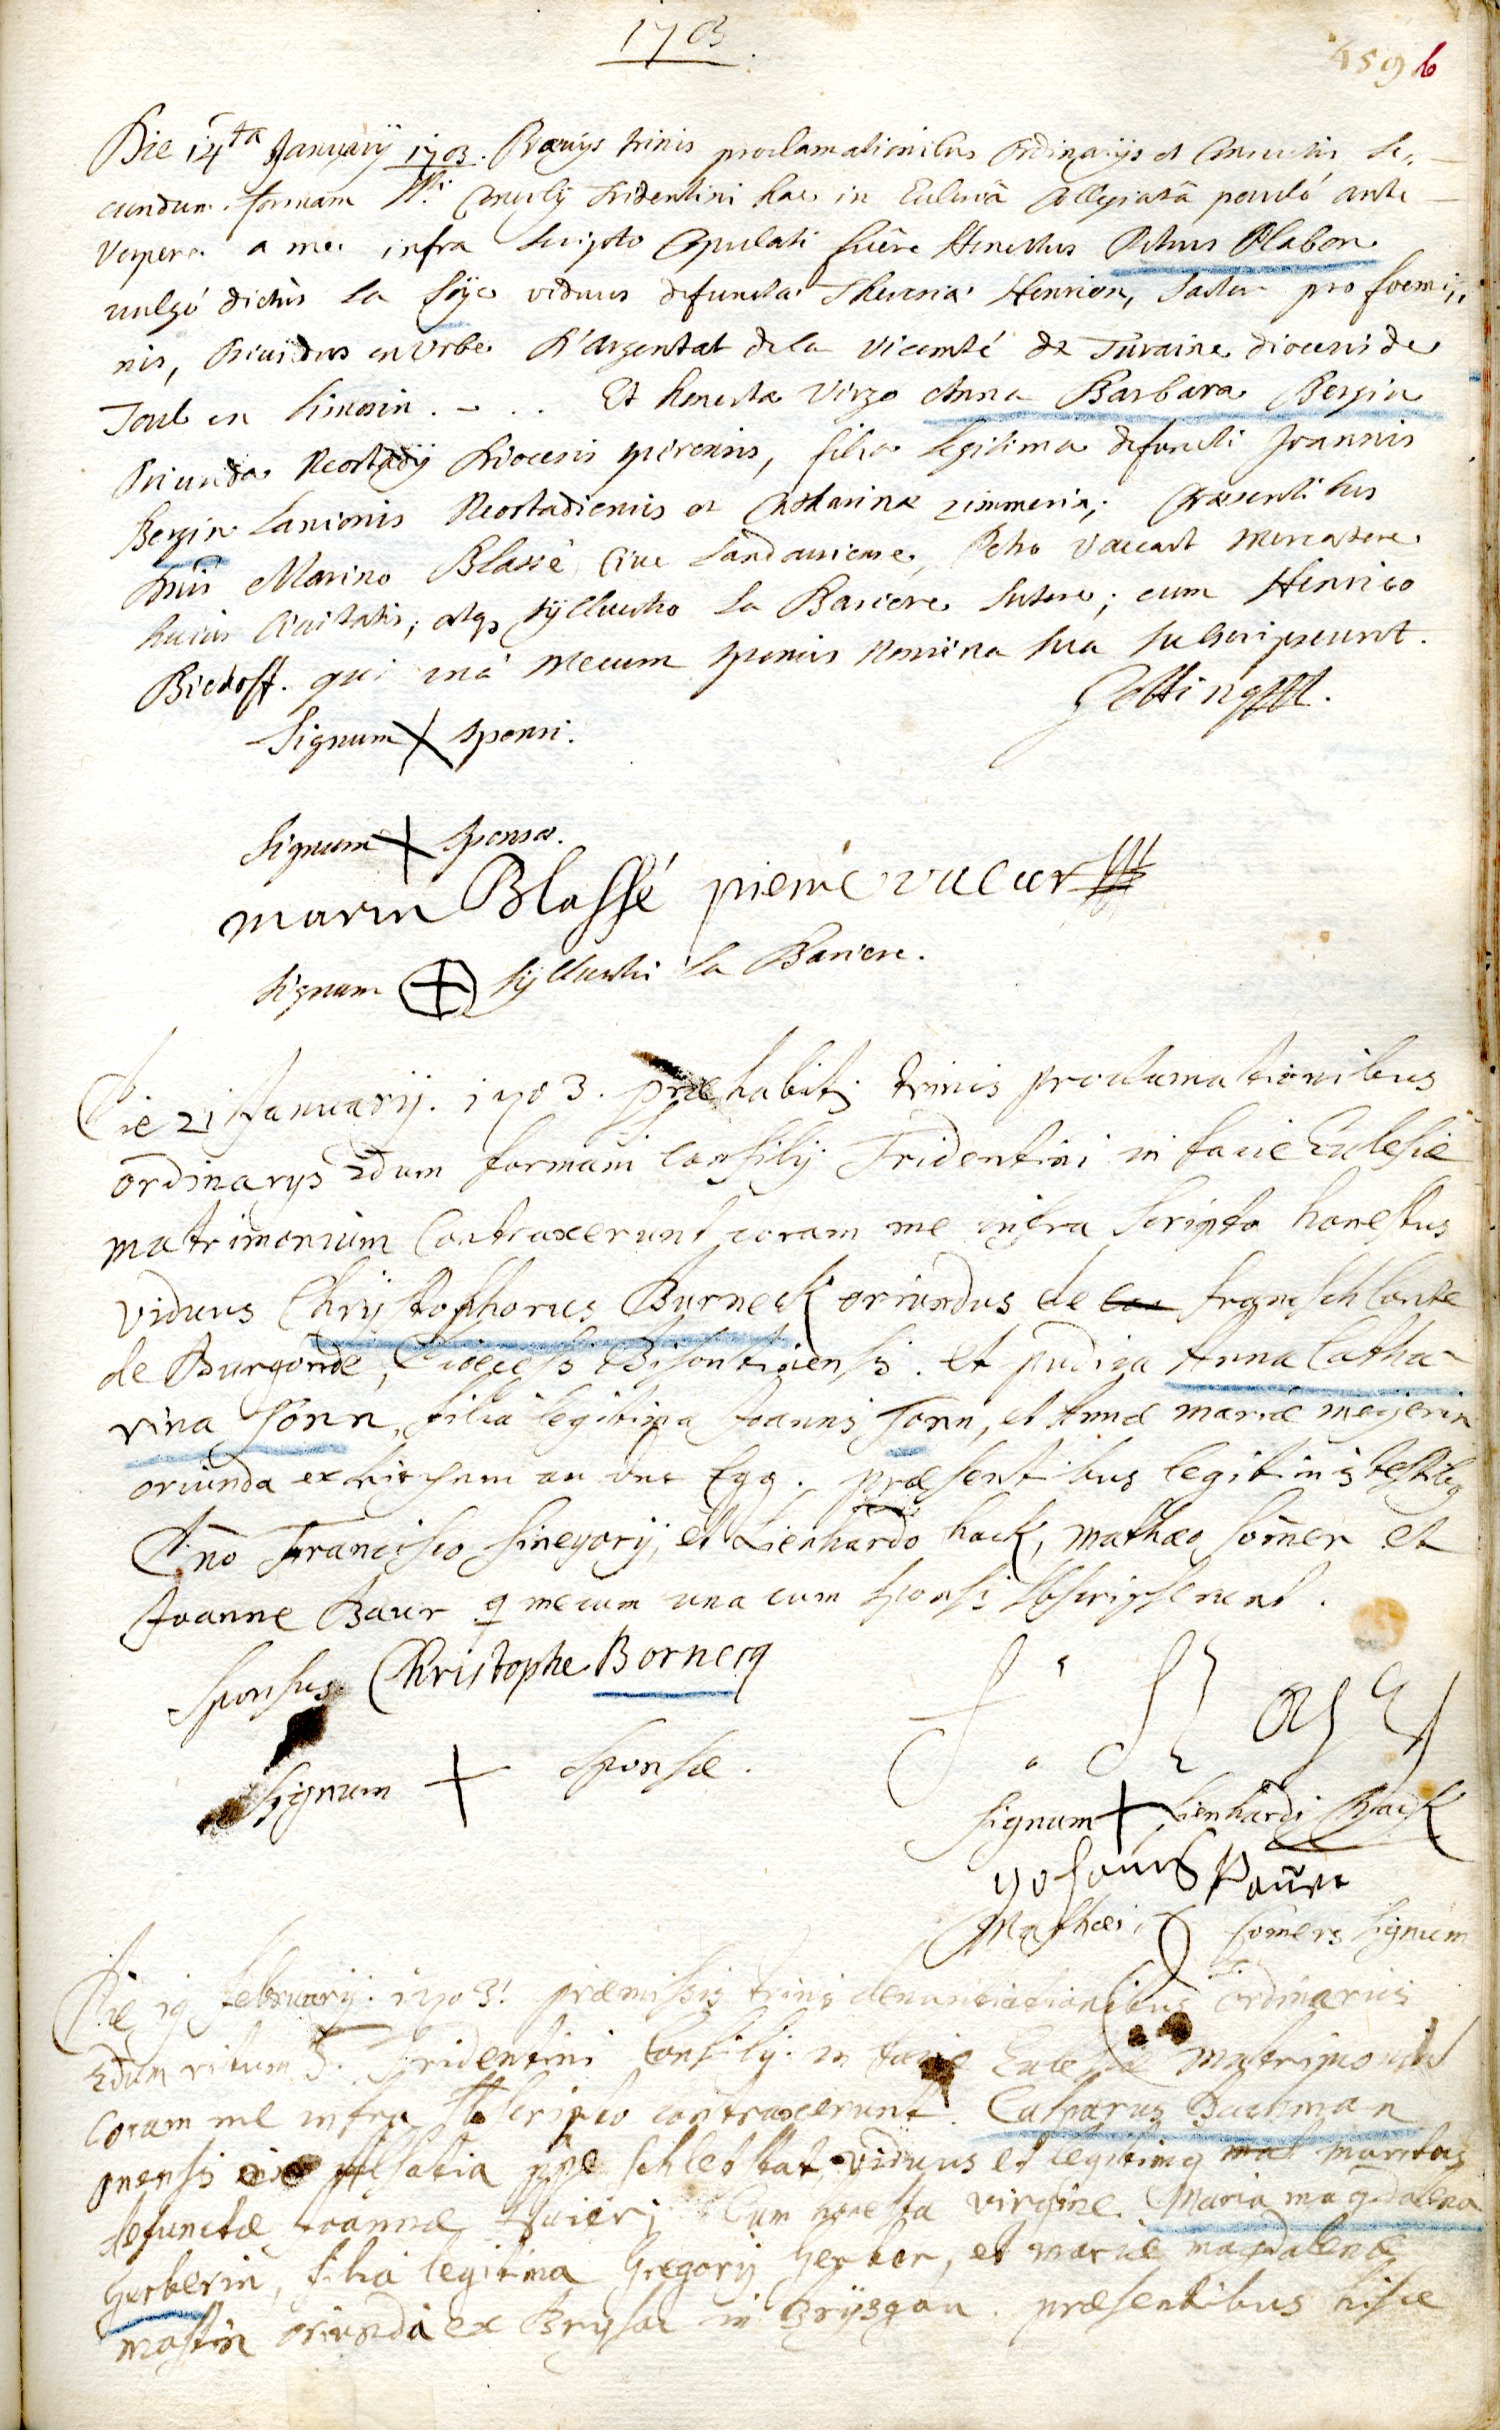 1703.
459 b
Die 14ta Januarij 1703. Praevijs trinis proclamationibus Ordinarijs et Consuetis Se¬
cundum formam Sti. Concilij Tridentini hac in Ecclesiâ Collegiatâ pauló ante
Vespere a me infra Scripto Copulati fuêre Honestus Petrus Blabon
vulgó dictus La Foÿe viduus defunctae Theresiae Henrion, Sartor pro foemi¬
nis, Oriundus en Urbe D'argentat dela Vicomté de Turaine dioecesis de
Toul en Limosin. - . . Et honesta Virgo Anna Barbara Bergin
Oriunda Neostadij Dioecesis spirensis, filia legitima defuncti Joannis
Bergin Lanionis Neostadiensis et Catharinae Zimmerin; Praesentibus
Dnis Marino Blassé Cive Landaviense, Petro Vaccart Mercatore
huius Civitatis, atq Sÿlvestro La Bariere Sutore; cum Henrico
Bischoff. qui unà mecum sponsis Nomina sua subscripserunt.
Gotting
Signum X sponsi.
Signum X sponsae.
marin Blassé pierre vacar
Signum + Sÿlvestri La Bariere.
Die 21 Januarij. 1703. praehabitis trinis proclamationibus
ordinarys 2dum formam Consilij Tridentini in facie Eclesiae
matrimonium Contraxerunt coram me infra scripto honestus
viduus Chrijstophorus Burneck oriundus de franschConte
de Burgonde, Dioecesis Bisontiniensis. et pudica Anna Catha-
rina Sonn, filia legitima Joannis Sonn, et Annae mariae meijerin
oriunda ex Kirchem an der Egg. praesentibus legitimis testibus
Dno Francisco Sinegorij, et Lienhardo hack, mathaeo Somer et
Joanne Baur q mecum una cum sponsis subscripserunt.
Sponsus Christophe Bornecq
Signum + Sponsae.
Signum + Lienhardi Hack
Johanes Paur
Mathaei Somers Signum
Die 19 februarij. 1703. praemissis trinis denunciationibus ordinarius
2dum ritum S. Tridentini Consilij. in facie Eclesiae matrimonium
Coram me infra Scripto contraxerunt. Casparus Bachman
ex Alsatia prope Schletstat, viduus et legitimus maritus
defunctae Joannae Cum honesta virgine. Maria magdalena
Gerberin, filia legitima Gregorij Gerber, et mariae magdalenae
mastin oriunda ex Brysac in Brijsgau. praesentibus hisce